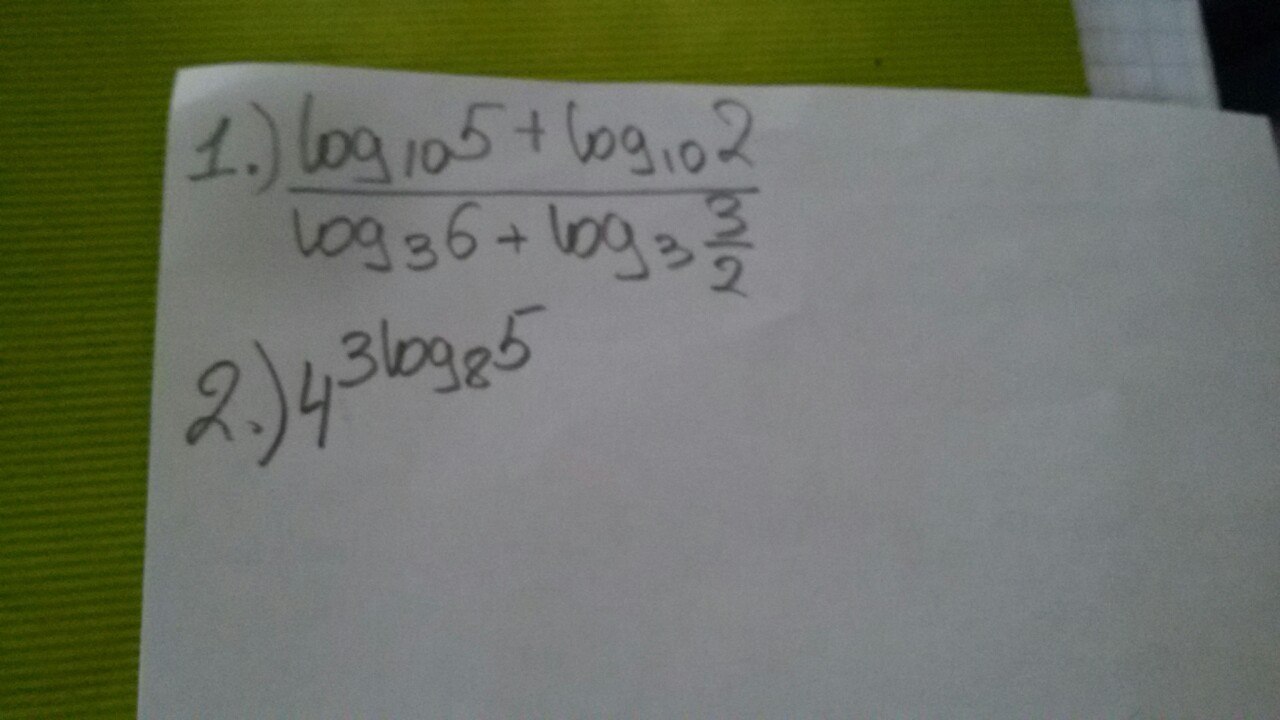 1.) (log₁₀5 + log₁₀2) / (log₃6 + log₃ 3/2)
2.) 4^(3log₈5)